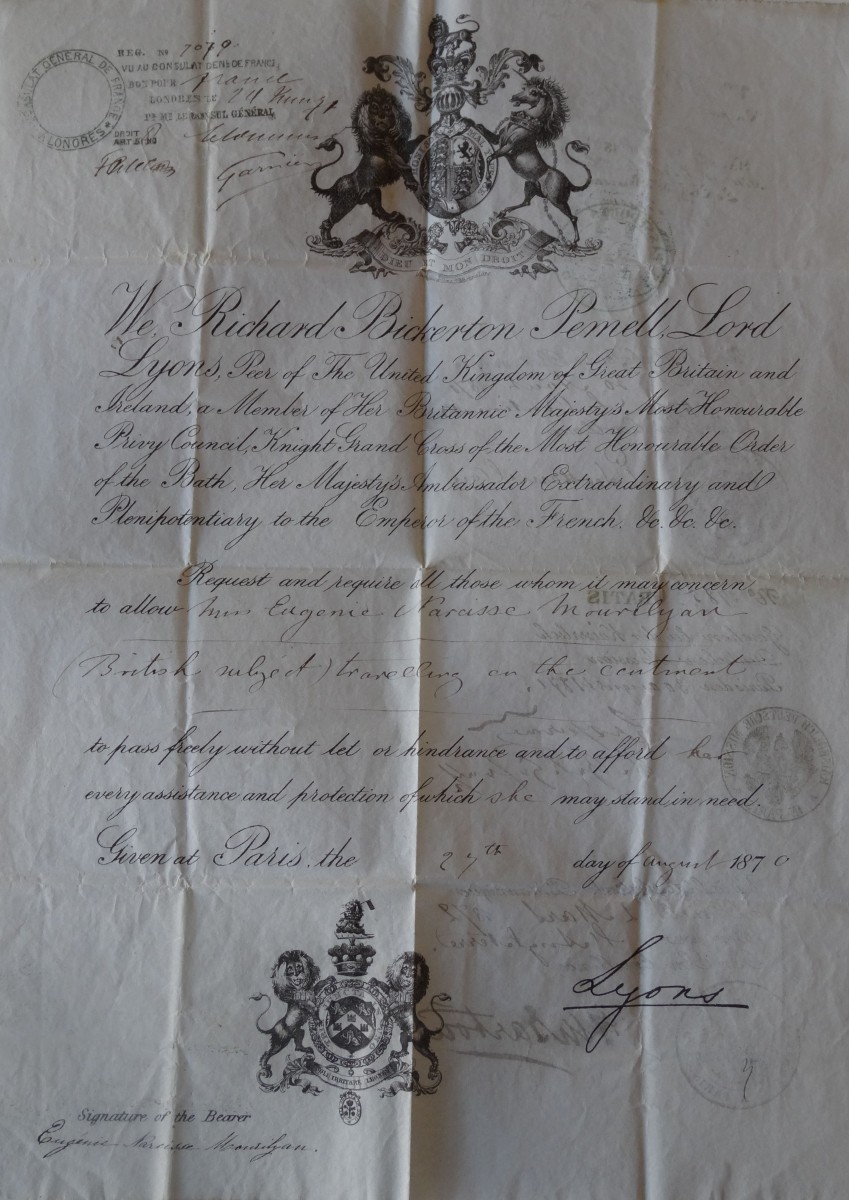 REG. No 1079
VU AU CONSULAT GENl DE FRANCE
BON POUR France
LONDRES LE 24
Pr Mr LE CONSUL GÉNÉRAL
DROIT 8
ART 51
CONSULAT GÉNÉRAL DE FRANCE
A LONDRES
Garnier
DIEU ET MON DROIT
We, Richard Bickerton Pemell, Lord
Lyons, Peer of The United Kingdom of Great Britain and
Ireland, a Member of Her Britannic Majesty's Most Honourable
Privy Council, Knight Grand Cross of the Most Honourable Order
of the Bath, Her Majesty's Ambassador Extraordinary and
Plenipotentiary to the Emperor of the French, &c. &c. &c.
Request and require all those whom it may concern
to allow Eugenie Narcisse Mourilyan
(British subject) travelling on the continent
to pass freely without let or hindrance and to afford her
every assistance and protection of which she may stand in need.
Given at Paris, the 27th day of August 1870
Lyons
Signature of the Bearer
Eugénie Narcisse Mourilyan.